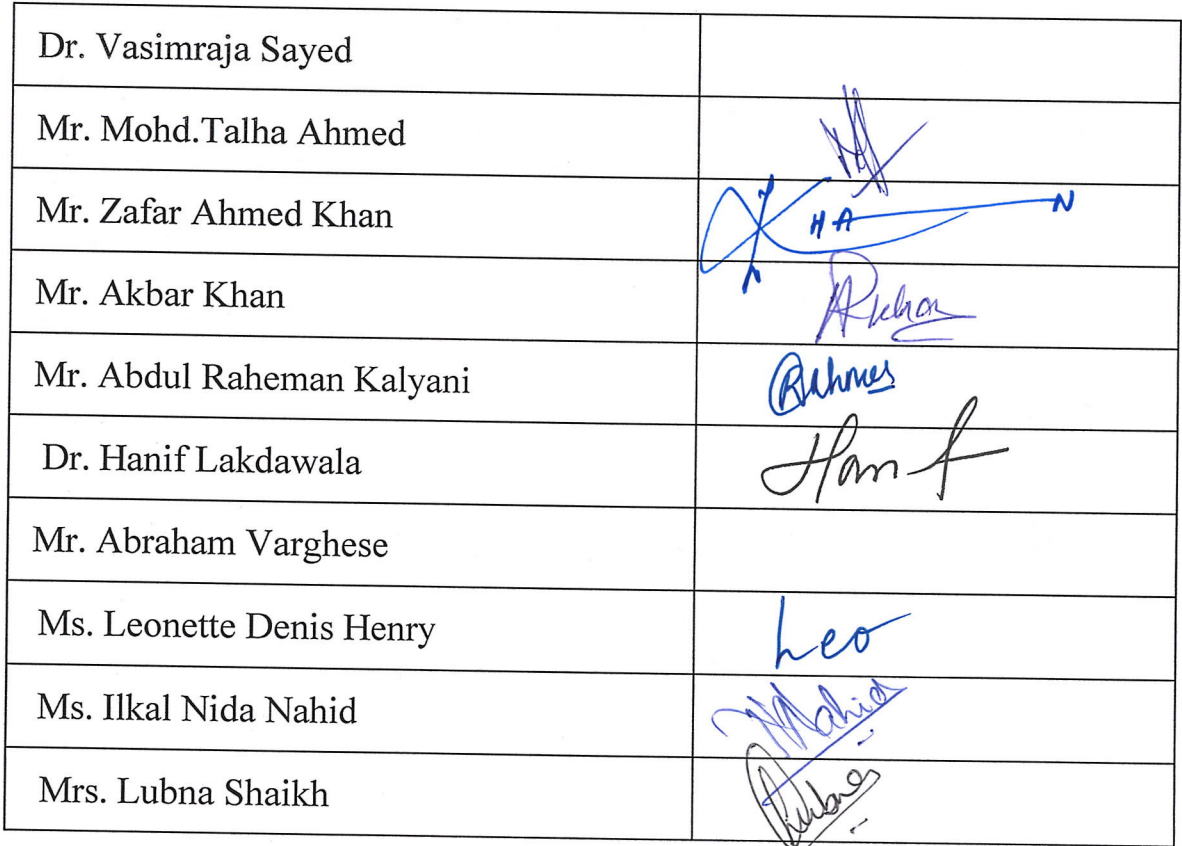 Dr. Vasimraja Sayed
Mr. Mohd.Talha Ahmed
Mr. Zafar Ahmed Khan
KHAN
Mr. Akbar Khan
Akbar
Mr. Abdul Raheman Kalyani
Dr. Hanif Lakdawala
Hanif
Mr. Abraham Varghese
Ms. Leonette Denis Henry
Leo
Ms. Ilkal Nida Nahid
Nahid
Mrs. Lubna Shaikh
Lubna